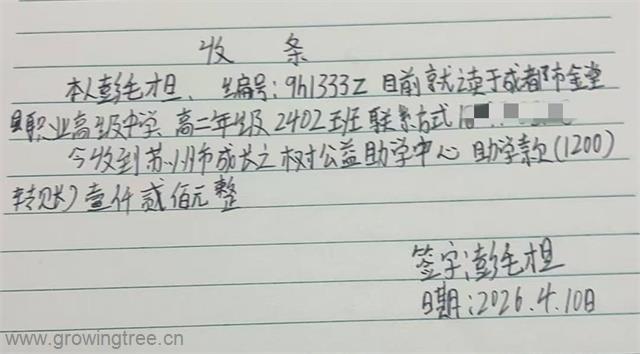 收 条
本人彭毛担、编号:9h1333z 目前就读于成都市金堂
县职业高级中学 高二年级2402班 联系方式18
今收到苏州市成长之树公益助学中心 助学款(1200)
转账)壹仟贰佰元整
签字:彭毛担
日期:2026.4.10日
www.growingtree.cn